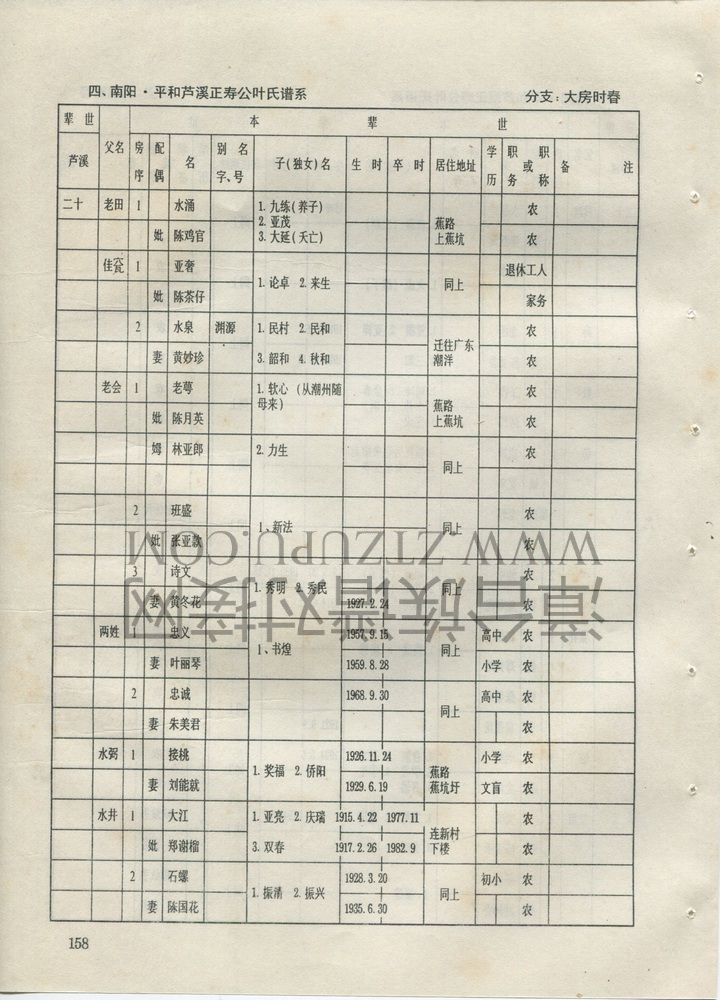 四、南阳·平和芦溪正寿公叶氏谱系 分支：大房时春
辈 世 本 辈 世
芦溪 父名 房序 配偶 名 别名字、号 子(独女)名 生 时 卒 时 居住地址 学历 职务或职称 备 注
二十 老田 1 水涌 1. 九练(养子) 2. 亚茂 3. 大延(夭亡) 蕉路上蕉坑 农
妣 陈鸡官 农
1 亚奢 1. 论卓 2. 来生 同上 退休工人
妣 陈茶仔 家务
2 水泉 渊源 1. 民村 2. 民和 迁往广东潮洋 农
妻 黄妙珍 3. 韶和 4. 秋和 农
老会 1 老萼 1. 软心 (从潮州随母来) 蕉路上蕉坑 农
妣 陈月英 农
姆 林亚郎 2. 力生 同上 农
2 班盛 1、新法 同上 农
妣 张亚款 农
3 诗文 1. 秀明 2. 秀民 同上 农
妻 黄冬花 1927.2.24 农
两姓 1 忠义 1、书煌 1957.9.15 同上 高中 农
妻 叶丽琴 1959.8.28 小学 农
2 忠诚 1968.9.30 同上 高中 农
妻 朱美君 农
水弼 1 接桃 1. 奖福 2. 侨阳 1926.11.24 蕉路蕉坑圩 小学 农
妻 刘能就 1929.6.19 文盲 农
水井 1 大江 1. 亚亮 2. 庆瑞 1915.4.22 1977.11 连新村下楼 农
妣 郑谢榴 3. 双春 1917.2.26 1982.9 农
2 石螺 1. 振清 2. 振兴 1928.3.20 同上 初小 农
妻 陈国花 1935.6.30 农
158
漳台族谱对接网
WWW.ZTZUPU.COM